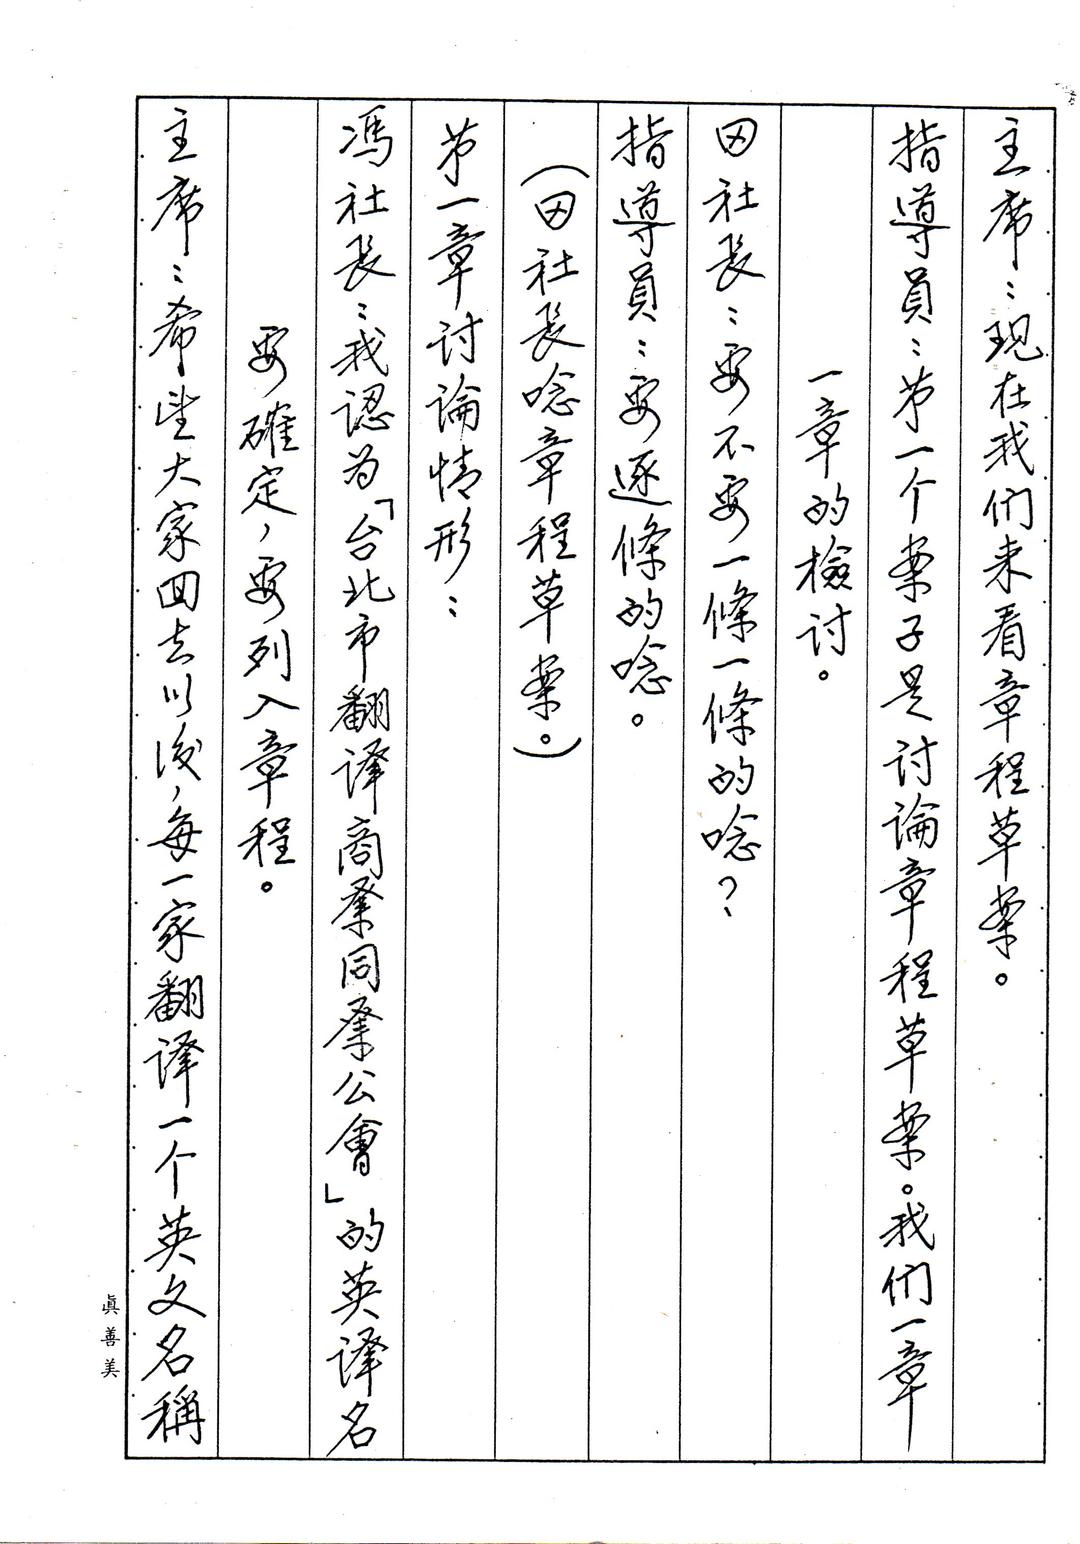 主席：現在我们来看章程草案。
指導員：第一个案子是討論章程草案。我们一章
一章的檢討。
田社長：要不要一條一條的唸？
指導員：要逐條的唸。
（田社長唸章程草案。）
第一章討論情形：
馮社長：我認为「台北市翻譯商業同業公會」的英譯名
要確定，要列入章程。
主席：希望大家回去以後，每一家翻譯一个英文名稱
眞善美